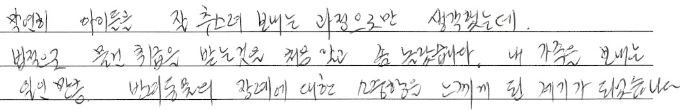 막연히 아이들을 잘 추스려 보내는 과정으로만 생각했는데.
법적으로 물건 취급을 받는것을 처음 알고 좀 놀랐습니다. 내 가족을 보내는
일인 만큼 반려동물의 장례에 대한 소중함을 느끼게 된 계기가 되었습니다